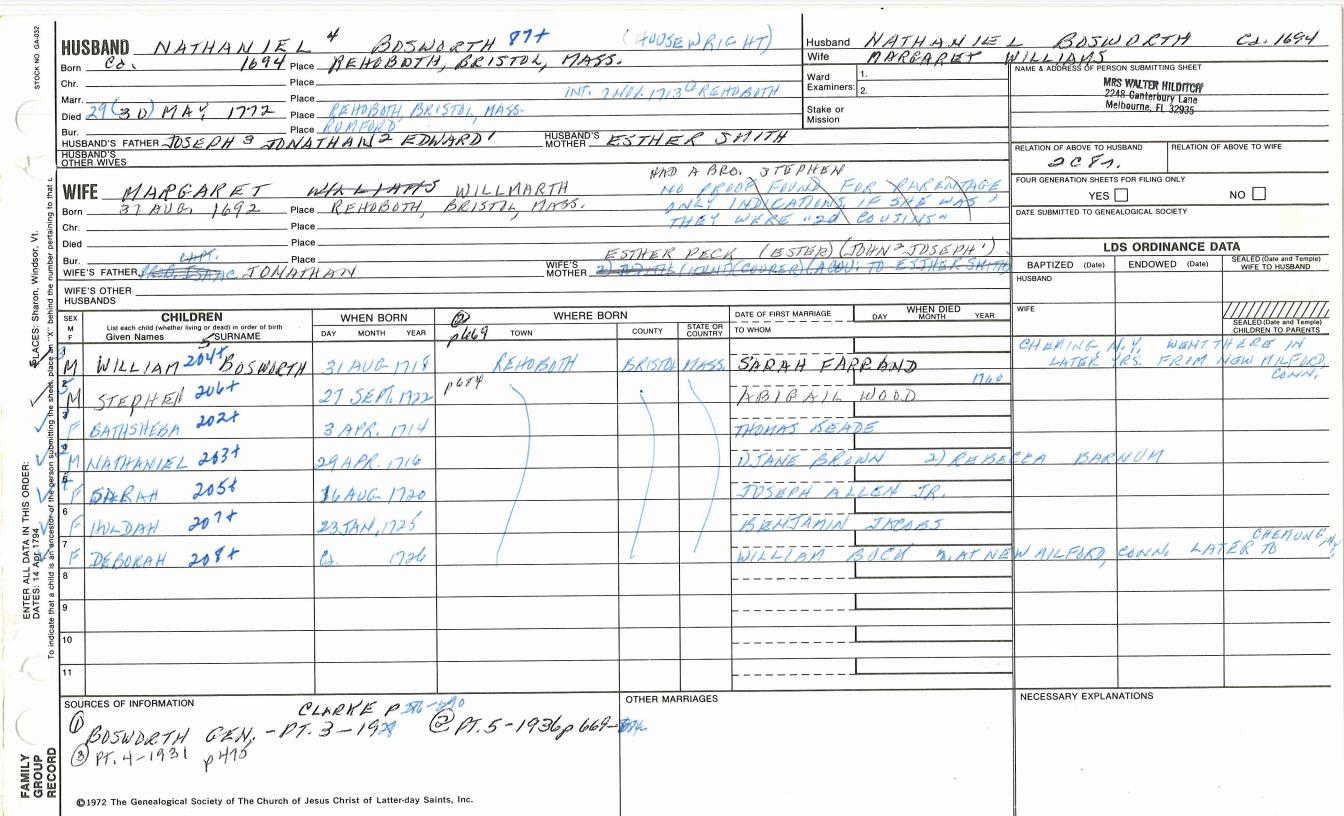 STOCK NO. GA-032
HUSBAND NATHANIEL 4 BOSWORTH 87+ (HOUSEWRIGHT)
Born Ca. 1694 Place REHOBOTH, BRISTOL, MASS.
Chr. Place
Marr. Place INT. 7 NOV. 1713 @ REHOBOTH
Died 29 (30) MAY, 1772 Place REHOBOTH, BRISTOL, MASS.
Bur. Place RUMFORD
HUSBAND'S FATHER JOSEPH 3 JONATHAN 2 EDWARD 1 HUSBAND'S MOTHER ESTHER SMITH
HUSBAND'S OTHER WIVES
Husband NATHANIEL BOSWORTH Ca. 1694
Wife MARGARET WILLIAMS
Ward Examiners: 1.
2.
Stake or Mission
NAME & ADDRESS OF PERSON SUBMITTING SHEET
MRS WALTER HILDITCH
2248 Canterbury Lane
Melbourne, Fl. 32935
RELATION OF ABOVE TO HUSBAND RELATION OF ABOVE TO WIFE
2C8r.
FOUR GENERATION SHEETS FOR FILING ONLY
YES NO
DATE SUBMITTED TO GENEALOGICAL SOCIETY
LDS ORDINANCE DATA
BAPTIZED (Date) ENDOWED (Date) SEALED (Date and Temple) WIFE TO HUSBAND
HUSBAND
WIFE
SEALED (Date and Temple) CHILDREN TO PARENTS
HAD A BRO. STEPHEN
WIFE MARGARET WILLIAMS WILLMARTH NO PROOF FOUND FOR PARENTAGE
Born 31 AUG. 1692 Place REHOBOTH, BRISTOL, MASS. ONLY INDICATIONS IF SHE WAS
Chr. Place THEY WERE "2d COUSINS"
Died Place
Bur. Place ESTHER PECK (ESTER) (JOHN 2 JOSEPH 1)
CAPT.
WIFE'S FATHER ISAAC JONATHAN WIFE'S MOTHER 2) (COOPER) (ACCOU. TO ESTHER SMITH
WIFE'S OTHER HUSBANDS
SEX M F CHILDREN List each child (whether living or dead) in order of birth Given Names SURNAME
WHEN BORN DAY MONTH YEAR
WHERE BORN TOWN COUNTY STATE OR COUNTRY
② p669
DATE OF FIRST MARRIAGE TO WHOM
WHEN DIED DAY MONTH YEAR
M WILLIAM 204+ 5 BOSWORTH 31 AUG 1718 REHOBOTH BRISTOL MASS. SARAH FARRAND
CHEMING N.Y. WENT THERE IN LATER YRS. FRIM NEW MILFORD, CONN.
M STEPHEN 206+ 27 SEPT. 1722 p684 ABIGAIL WOOD 1760
F BATHSHEBA 202+ 3 APR. 1714 THOMAS READE
M NATHANIEL 203+ 29 APR. 1716 1) JANE BROWN 2) REBECCA BARNUM
F SARAH 205+ 16 AUG 1720 JOSEPH ALLEN JR.
6 F HULDAH 207+ 23 JAN, 1725 BENJAMIN JACOBS
7 F DEBORAH 208+ Ca. 1726 WILLIAM BUCK m. AT NEW MILFORD, CONN. LATER TO CHEMUNG, N.Y.
8
9
10
11
SOURCES OF INFORMATION
CLARKE p
① BOSWORTH GEN. - PT. 3 - 1929 ② PT. 5 - 1936 p 669-
③ PT. 4 - 1931 p 475
OTHER MARRIAGES
NECESSARY EXPLANATIONS
©1972 The Genealogical Society of The Church of Jesus Christ of Latter-day Saints, Inc.
FAMILY GROUP RECORD
ENTER ALL DATA IN THIS ORDER:
DATES: 14 Apr 1794
PLACES: Sharon, Windsor, Vt.
To indicate that a child is an ancestor of the person submitting the sheet, place an "X" behind the number pertaining to that c